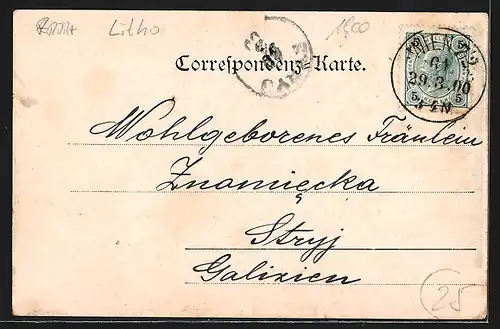 Litho 1900
Correspondenz-Karte.
WIEN
5 5
29.3.00
Wohlgeborenes Fräulein
Znamięcka
Stryj
Galizien
25